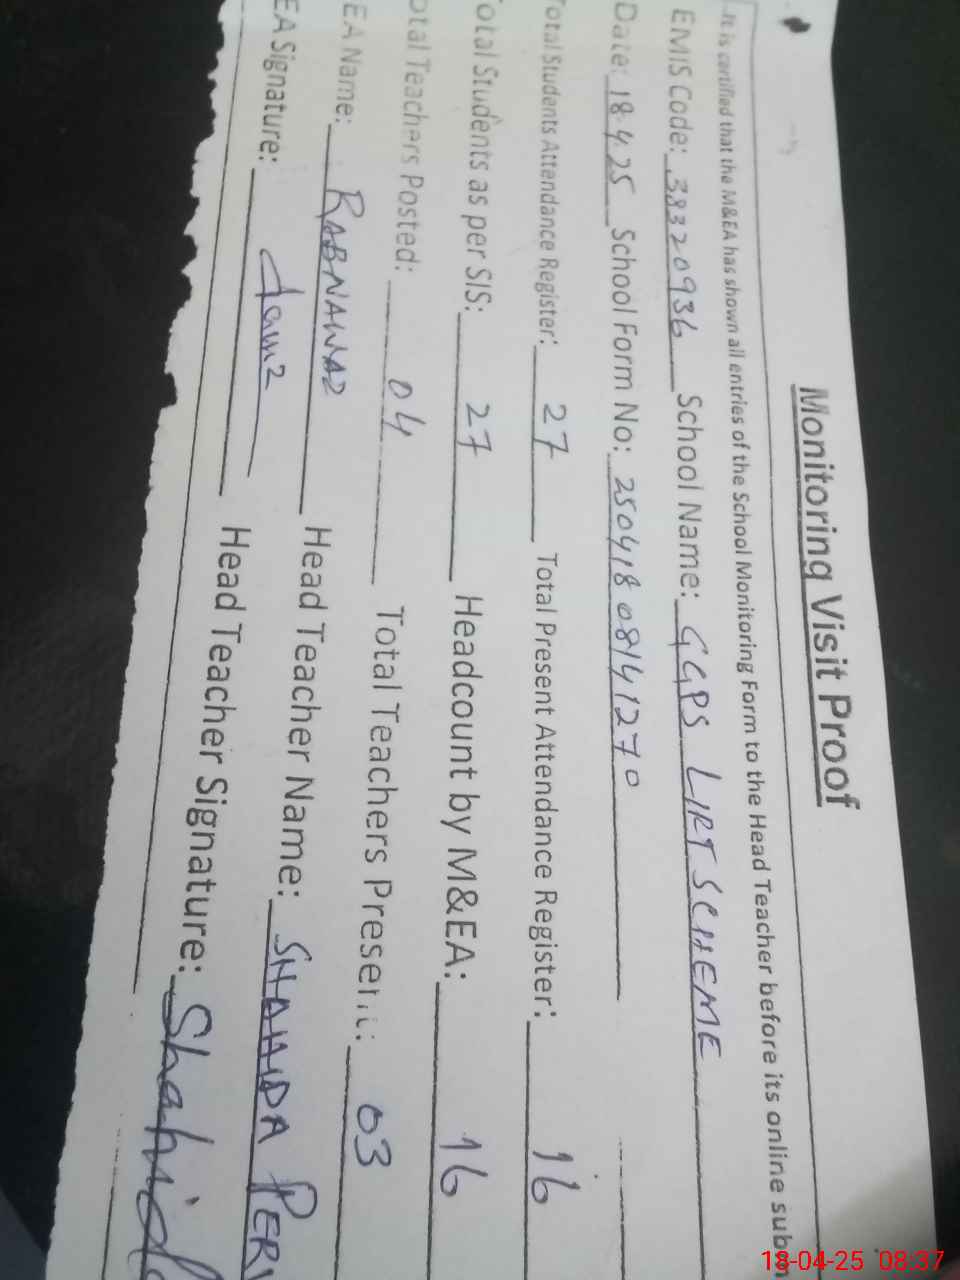 Monitoring Visit Proof
It is certified that the M&EA has shown all entries of the School Monitoring Form to the Head Teacher before its online subm
EMIS Code: 38320936 School Name: GGPS LIRT SCHEME
Date: 18.4.25 School Form No: 25041808141270
Total Students Attendance Register: 27 Total Present Attendance Register: 16
otal Students as per SIS: 27 Headcount by M&EA: 16
otal Teachers Posted: 04 Total Teachers Present: 03
EA Name: RABNAWAZ Head Teacher Name: SHAHIDA PERV
EA Signature: Head Teacher Signature: Shahid
18-04-25 08:37